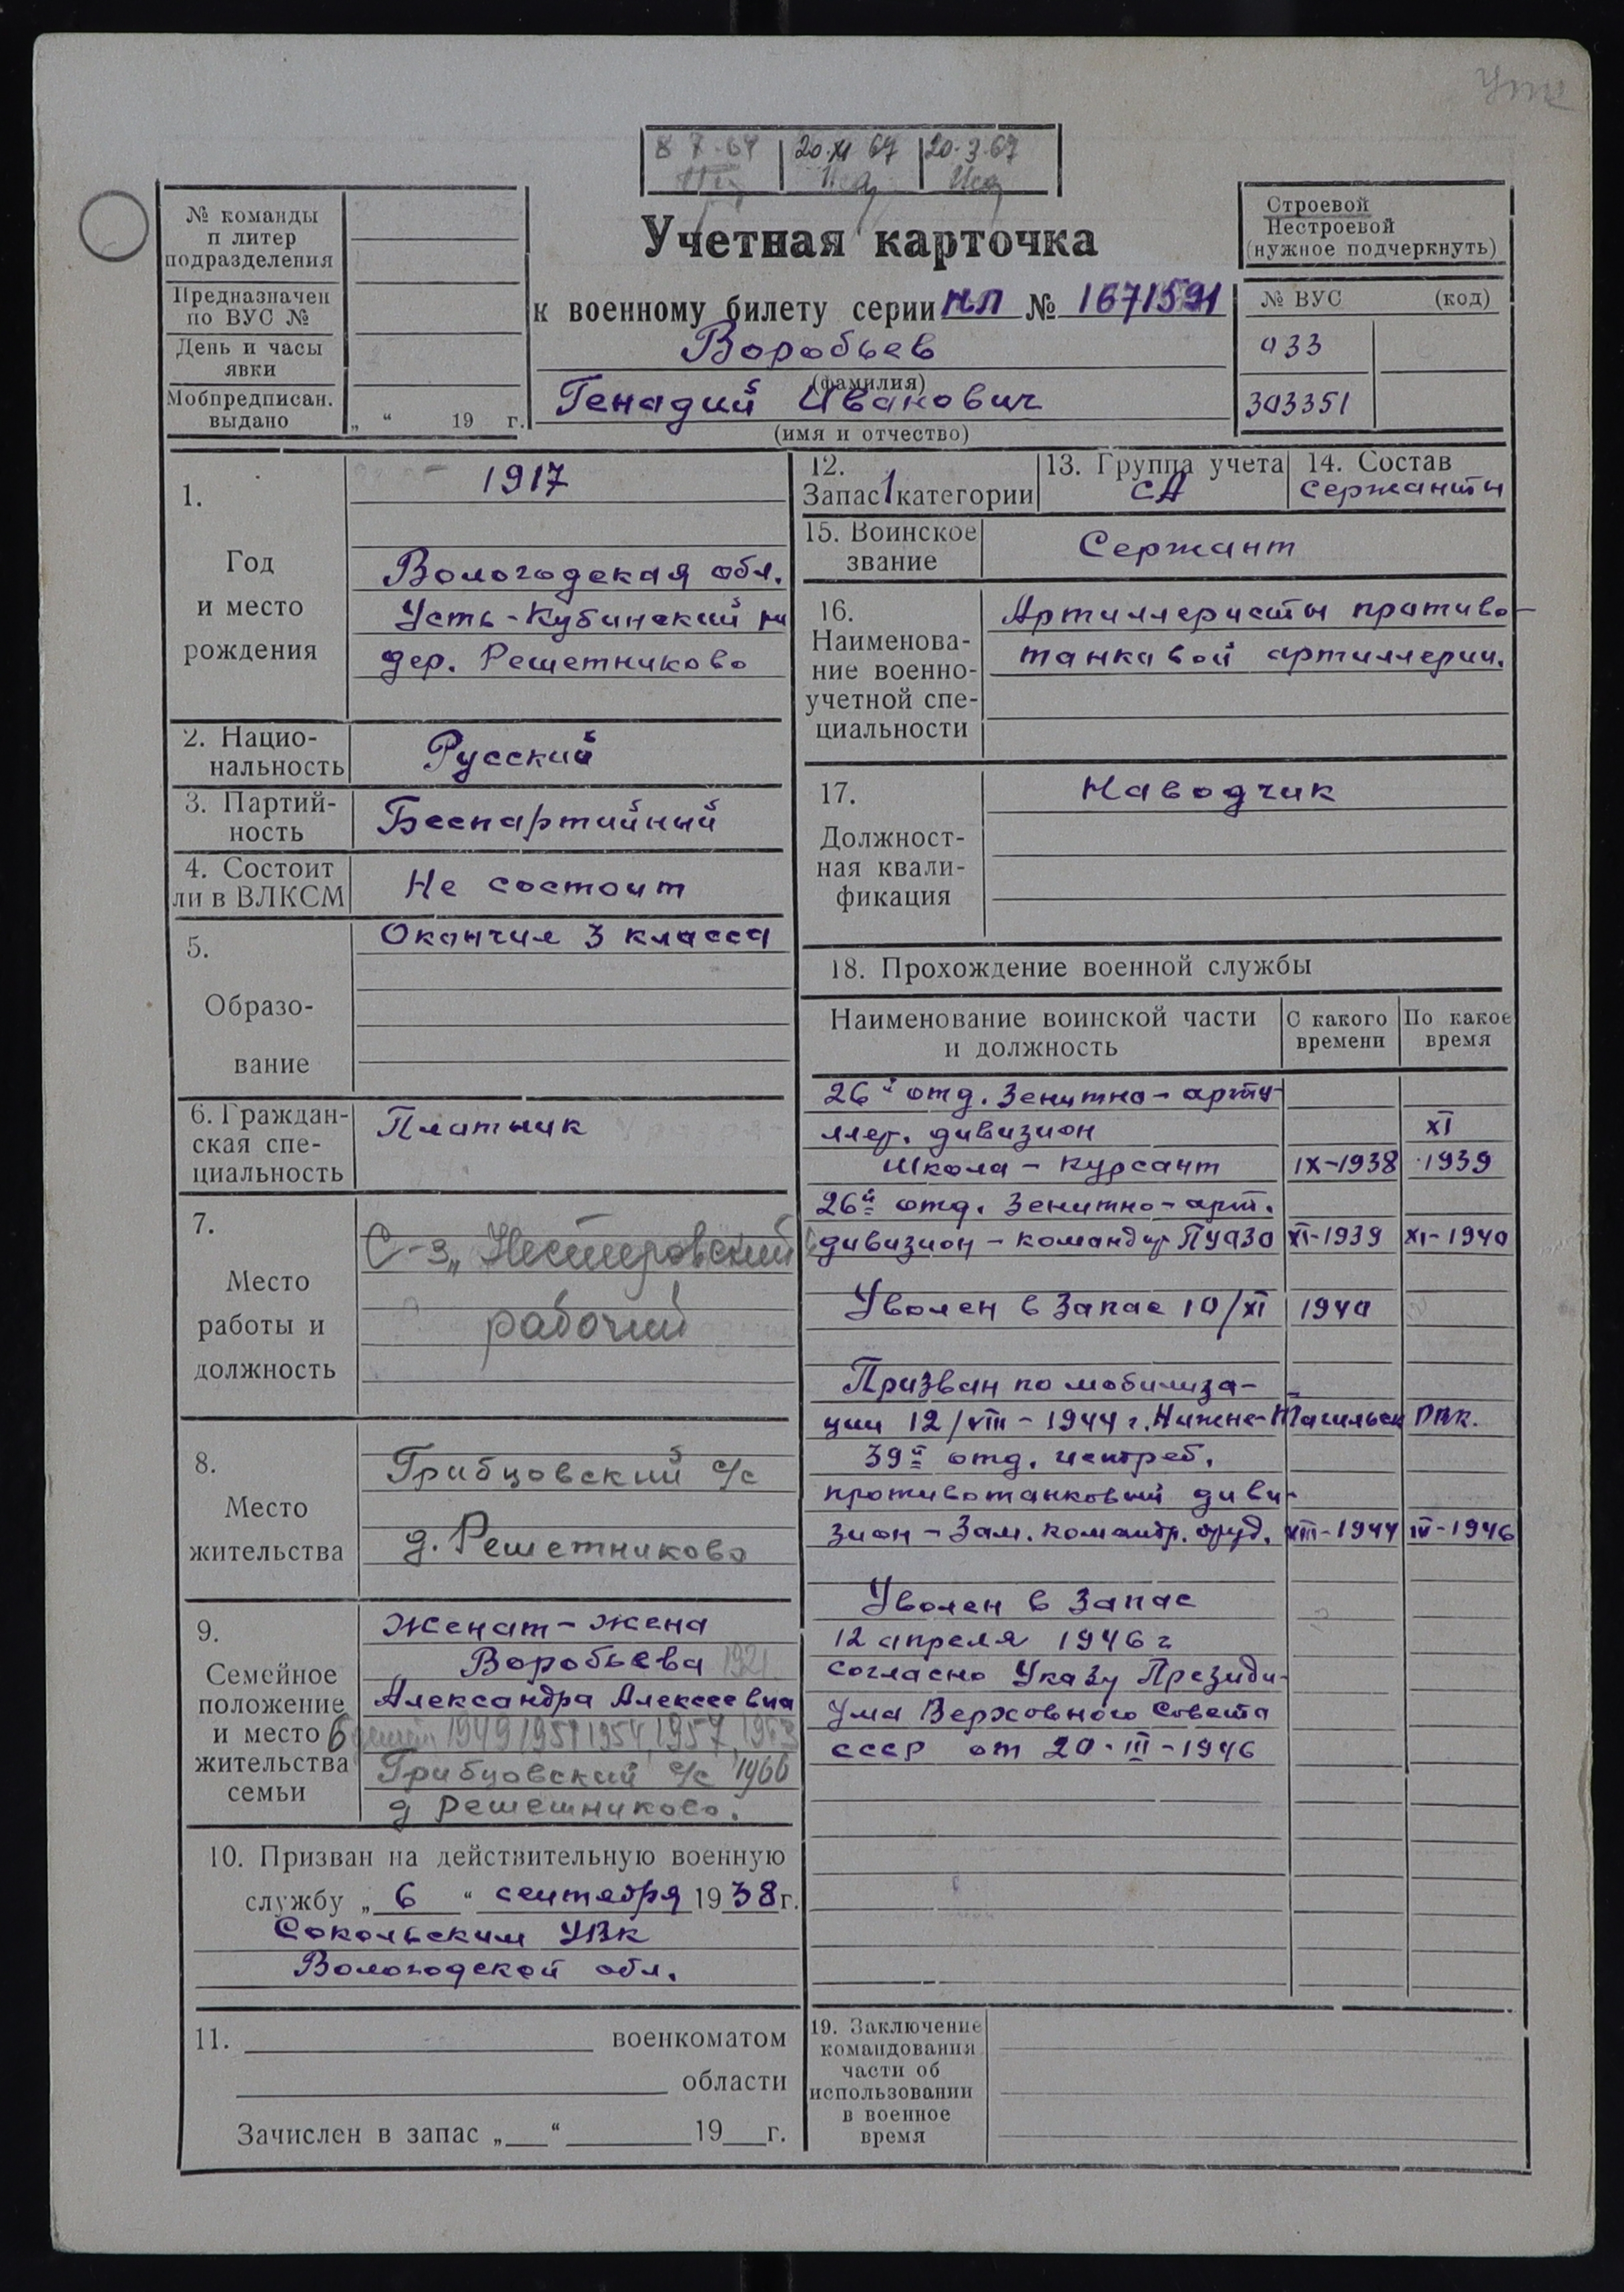 8 7-64 20.XI 67 20.3.67
Учетная карточка
к военному билету серии НЛ № 1671591
Воробьев
(фамилия)
Генадий Иванович
(имя и отчество)
№ команды
и литер
подразделения
Предназначен
по ВУС №
День и часы
явки
Мобпредписан.
выдано
„ “ 19 г.
Строевой
Нестроевой
(нужное подчеркнуть)
№ ВУС (код)
033
303351
1.
Год
и место
рождения
1917
Вологодская обл.
Усть-Кубинский рн
дер. Решетниково
2. Нацио-
нальность
Русский
3. Партий-
ность
Беспартийный
4. Состоит
ли в ВЛКСМ
Не состоит
5.
Образо-
вание
Окончил 3 класса
6. Граждан-
ская спе-
циальность
Плотник
7.
Место
работы и
должность
С-з „Нестеровский
рабочий
8.
Место
жительства
Грибцовский с/с
д. Решетниково
9.
Семейное
положение
и место
жительства
семьи
Женат - жена
Воробьева 1921
Александра Алексеевна
6 детей 1949 1951 1954, 1957, 1963
Грибцовский с/с 1966
д Решетниково.
10. Призван на действительную военную
службу „ 6 “ сентября 1938 г.
Сокольским УВК
Вологодской обл.
11. военкоматом
области
Зачислен в запас „ “ 19 г.
12.
Запас 1 категории
13. Группа учета
СА
14. Состав
Сержанты
15. Воинское
звание
Сержант
16.
Наименова-
ние военно-
учетной спе-
циальности
Артиллеристы противо-
танковой артиллерии.
17.
Должност-
ная квали-
фикация
Наводчик
18. Прохождение военной службы
Наименование воинской части
и должность
С какого
времени
По какое
время
26й отд. Зенитно-арти-
ллер. дивизион XI
Школа - курсант IX-1938 1939
26й отд. Зенитно-арт.
дивизион - командир ПУАЗО XI-1939 XI-1940
Уволен в запас 10/XI 1940
Призван по мобилиза-
ции 12/VIII-1944 г. Нижне-Тагильск РВК.
39й отд. истреб.
противотанковый диви-
зион - Зам. командр. оруд. VIII-1944 IV-1946
Уволен в запас
12 апреля 1946 г
согласно Указу Президи-
ума Верховного Совета
СССР от 20-III-1946
19. Заключение
командования
части об
использовании
в военное
время